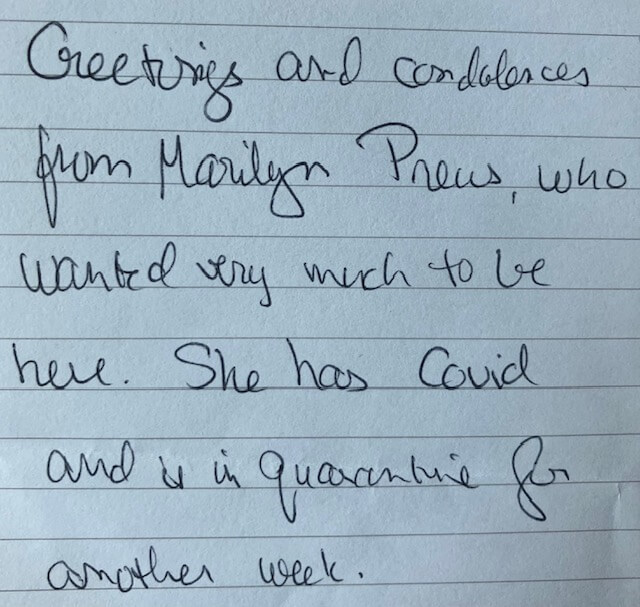 Greetings and condolences
from Marilyn Preus, who
wanted very much to be
here. She has Covid
and is in quarantine for
another week.